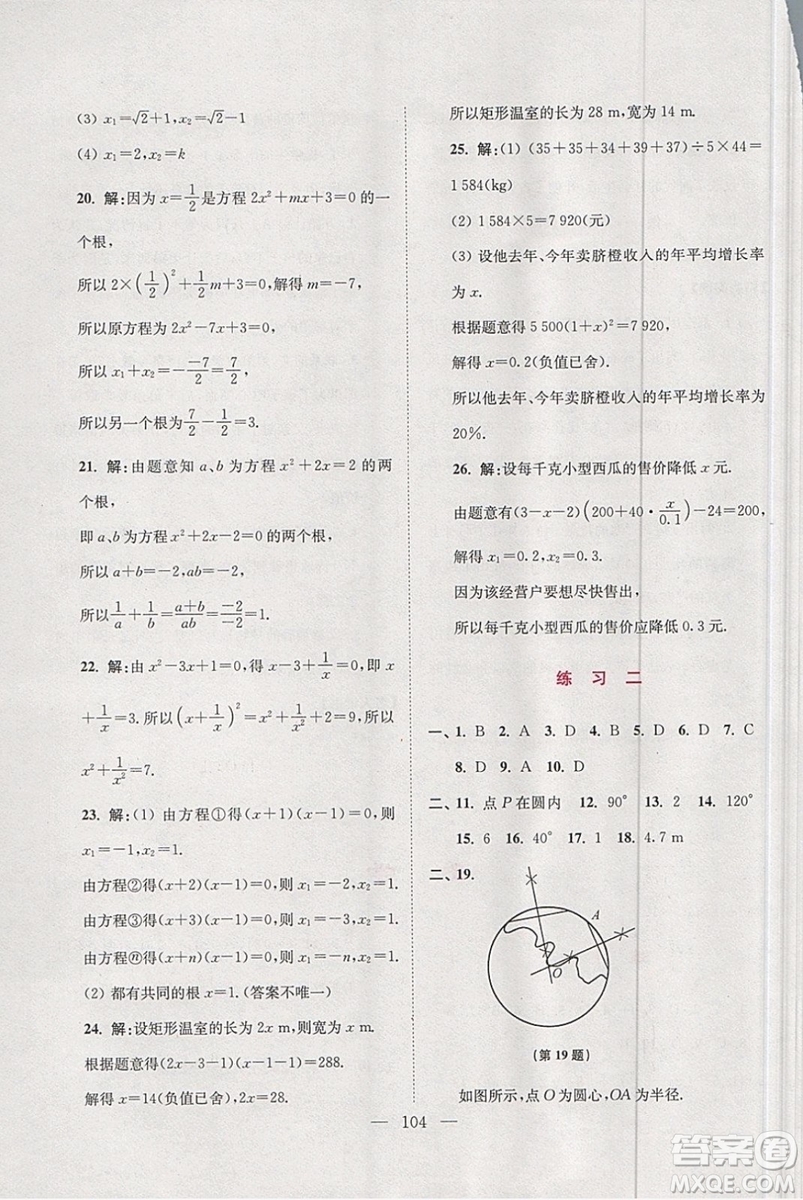 (3) x₁=√2+1,x₂=√2-1
(4) x₁=2,x₂=k
20. 解:因为 x=1/2 是方程 2x²+mx+3=0 的一
个根,
所以 2×(1/2)²+1/2m+3=0. 解得 m=-7,
所以原方程为 2x²-7x+3=0,
所以 x₁+x₂=-(-7)/2=7/2,
所以另一个根为 7/2-1/2=3.
21. 解:由题意知 a、b 为方程 x²+2x=2 的两
个根,
即 a、b 为方程 x²+2x-2=0 的两个根,
所以 a+b=-2,ab=-2,
所以 1/a+1/b=(a+b)/(ab)=(-2)/(-2)=1.
22. 解:由 x²-3x+1=0,得 x-3+1/x=0,即 x
+1/x=3. 所以(x+1/x)²=x²+1/x²+2=9,所以
x²+1/x²=7.
23. 解:(1) 由方程①得(x+1)(x-1)=0,则
x₁=-1,x₂=1.
由方程②得(x+2)(x-1)=0,则 x₁=-2,x₂=1.
由方程③得(x+3)(x-1)=0,则 x₁=-3,x₂=1.
由方程ⓝ得(x+n)(x-1)=0,则 x₁=-n,x₂=1.
(2) 都有共同的根 x=1. (答案不唯一)
24. 解:设矩形温室的长为 2x m,则宽为 x m.
根据题意得(2x-3-1)(x-1-1)=288.
解得 x=14(负值已舍).
所以矩形温室的长为 28 m,宽为 14 m.
25. 解:(1) (35+35+34+39+37)÷5×44=
1 584(kg)
(2) 1 584×5=7 920(元)
(3) 设他去年、今年卖脐橙收入的年平均增长率
为 x.
根据题意得 5 500(1+x)²=7 920,
解得 x=0.2(负值已舍).
所以他去年、今年卖脐橙收入的年平均增长率为
20%.
26. 解:设每千克小型西瓜的售价降低 x 元.
由题意有(3-x-2)(200+40·x/0.1)-24=200,
解得 x₁=0.2,x₂=0.3.
因为该经营户要想尽快售出,
所以每千克小型西瓜的售价应降低 0.3 元.
练 习 二
一、1. B 2. A 3. D 4. B 5. A 6. D 7. C
8. D 9. A 10. D
二、11. 点 P 在圆内 12. 90° 13. 2 14. 120°
15. 6 16. 40° 17. 1 18. 4.7 m
二、19.
A
O
(第 19 题)
如图所示,点 O 为圆心,OA 为半径.
104
答案圈
MXQE.COM